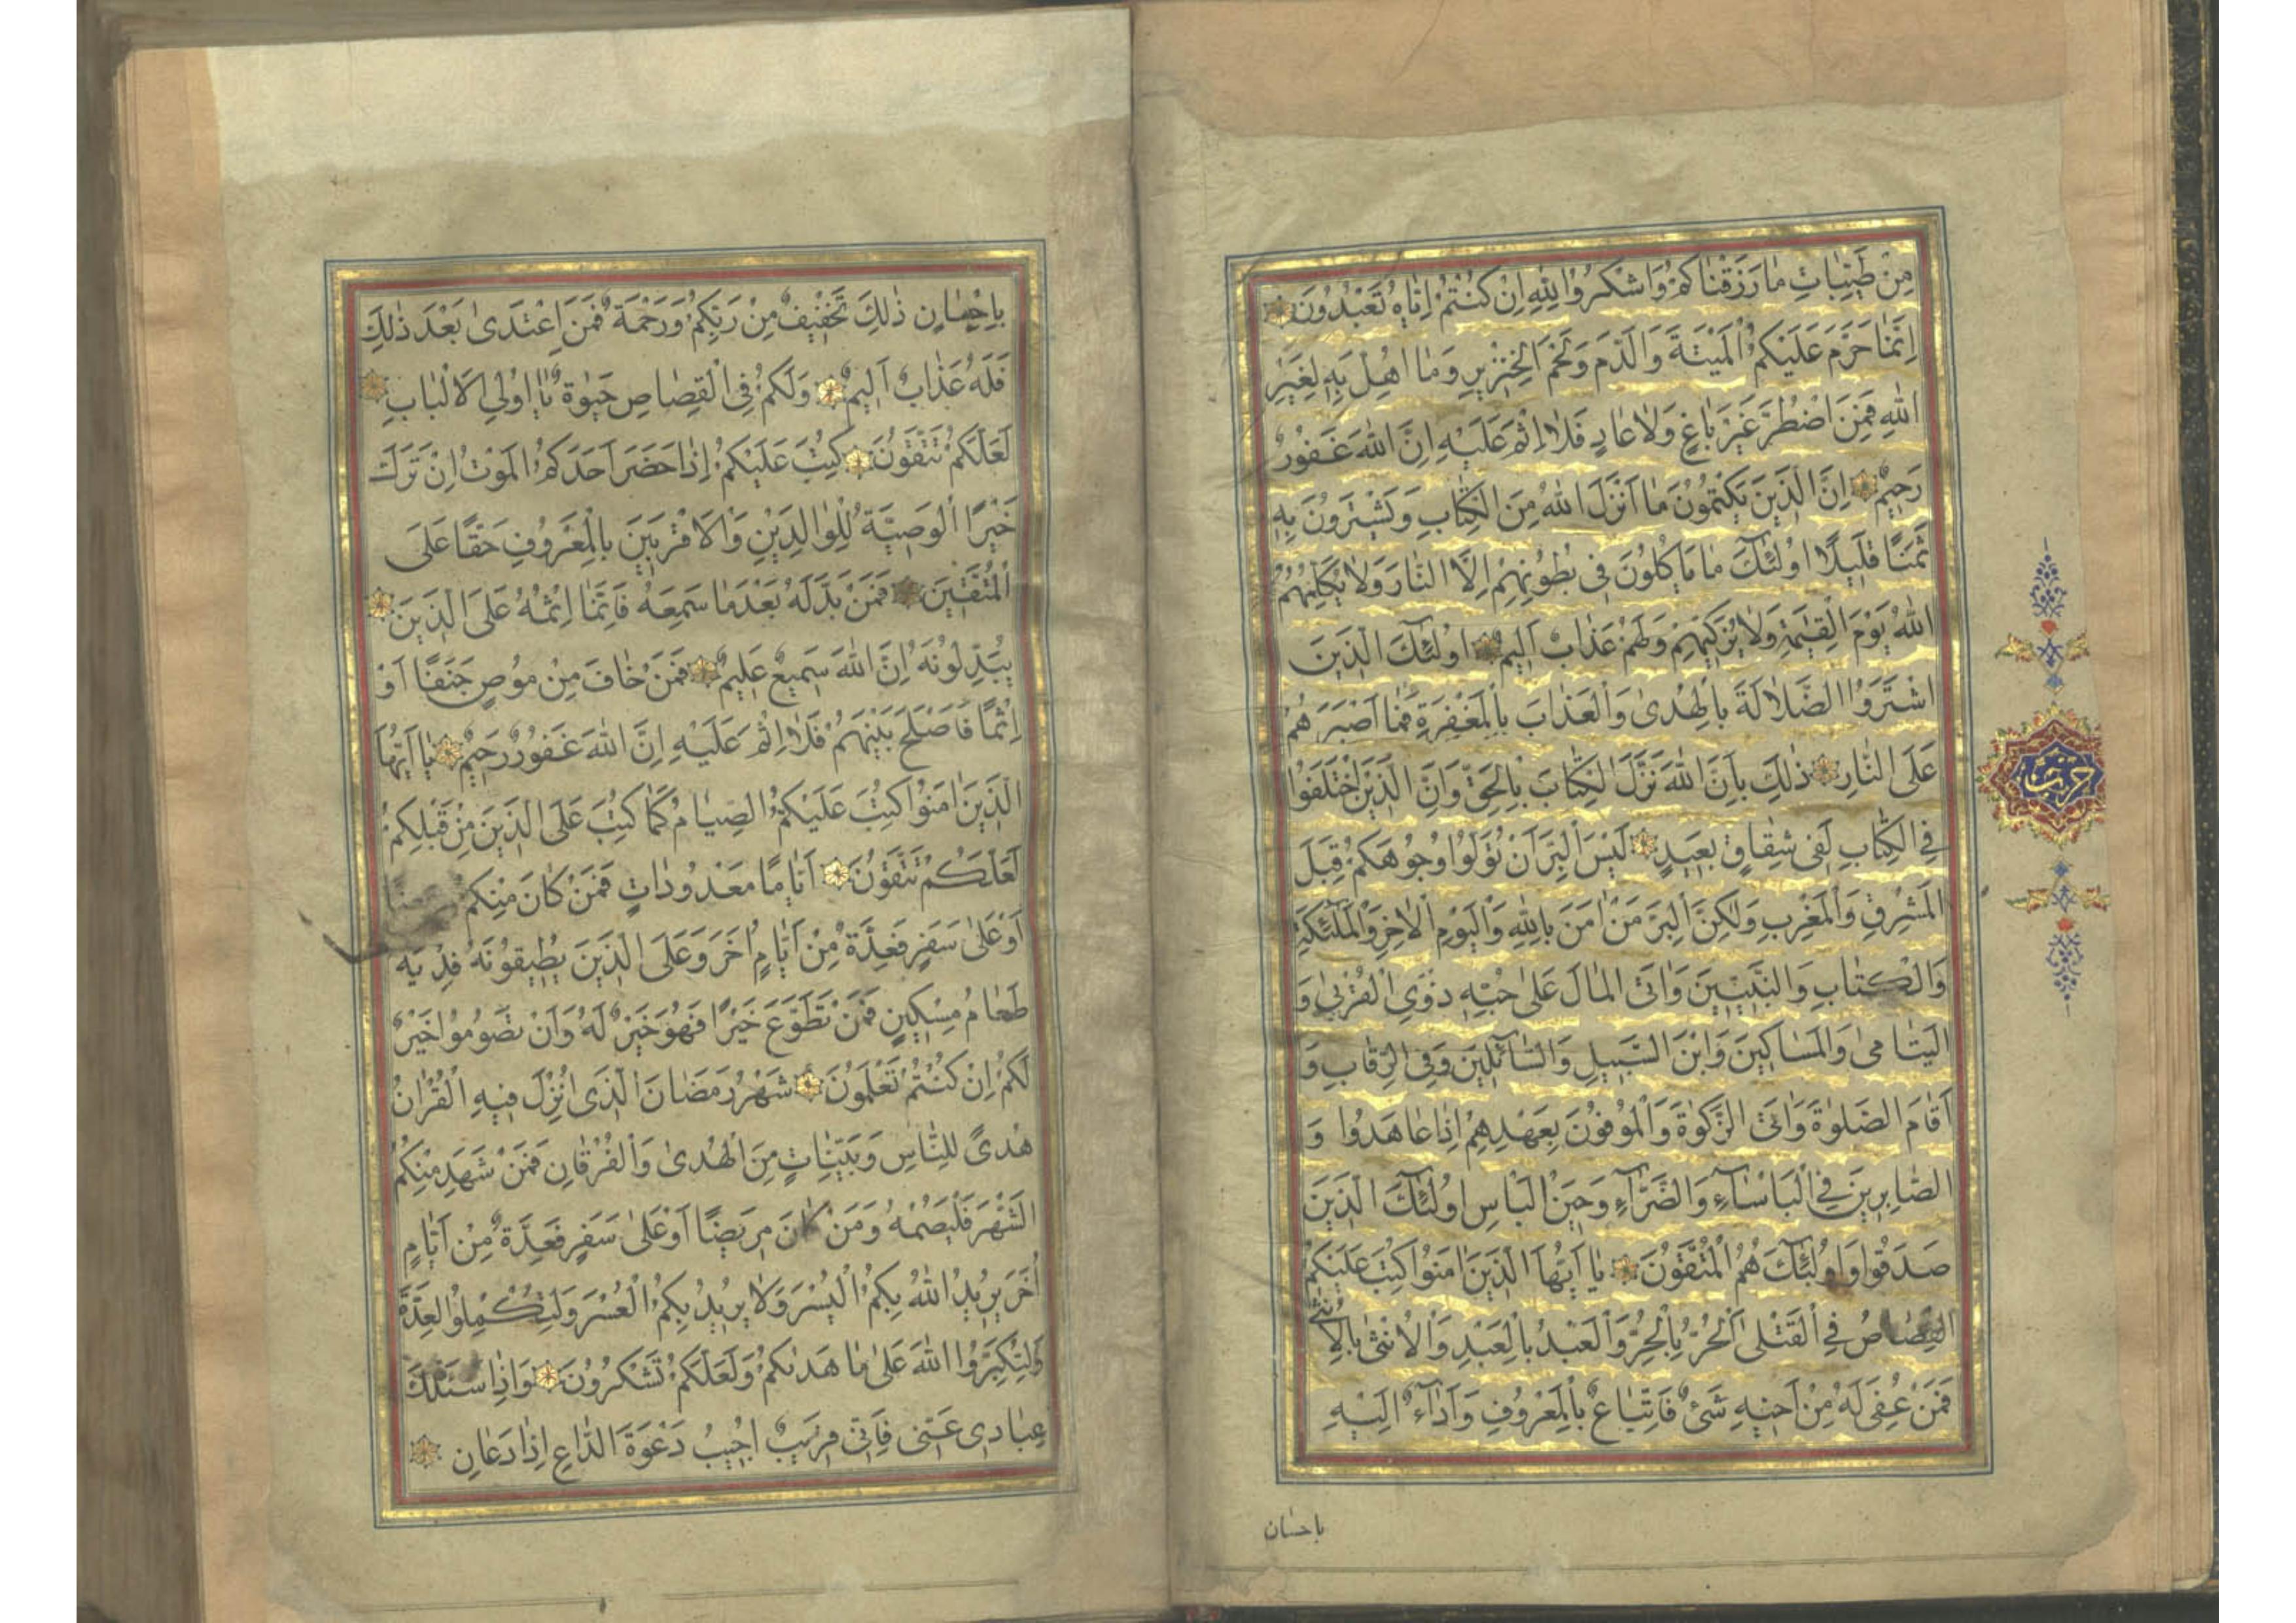 مِنْ طَيِّبَاتِ مَا رَزَقْنَاكُمْ وَاشْكُرُوا لِلّٰهِ اِنْ كُنْتُمْ اِيَّاهُ تَعْبُدُونَ
اِنَّمَا حَرَّمَ عَلَيْكُمُ الْمَيْتَةَ وَالدَّمَ وَلَحْمَ الْخِنْزِيرِ وَمَا اُهِلَّ بِهِ لِغَيْرِ
اللّٰهِ فَمَنِ اضْطُرَّ غَيْرَ بَاغٍ وَلَا عَادٍ فَلَا اِثْمَ عَلَيْهِ اِنَّ اللّٰهَ غَفُورٌ
رَحِيمٌ اِنَّ الَّذِينَ يَكْتُمُونَ مَا اَنْزَلَ اللّٰهُ مِنَ الْكِتَابِ وَيَشْتَرُونَ بِهِ
ثَمَنًا قَلِيلًا اُولٰئِكَ مَا يَاْكُلُونَ فِى بُطُونِهِمْ اِلَّا النَّارَ وَلَا يُكَلِّمُهُمُ
اللّٰهُ يَوْمَ الْقِيٰمَةِ وَلَا يُزَكِّيهِمْ وَلَهُمْ عَذَابٌ اَلِيمٌ اُولٰئِكَ الَّذِينَ
اشْتَرَوُا الضَّلَالَةَ بِالْهُدٰى وَالْعَذَابَ بِالْمَغْفِرَةِ فَمَا اَصْبَرَهُمْ
عَلَى النَّارِ ذٰلِكَ بِاَنَّ اللّٰهَ نَزَّلَ الْكِتَابَ بِالْحَقِّ وَاِنَّ الَّذِينَ اخْتَلَفُوا
حزب
فِى الْكِتَابِ لَفِى شِقَاقٍ بَعِيدٍ لَيْسَ الْبِرَّ اَنْ تُوَلُّوا وُجُوهَكُمْ قِبَلَ
الْمَشْرِقِ وَالْمَغْرِبِ وَلٰكِنَّ الْبِرَّ مَنْ اٰمَنَ بِاللّٰهِ وَالْيَوْمِ الْاٰخِرِ وَالْمَلٰئِكَةِ
وَالْكِتَابِ وَالنَّبِيِّينَ وَاٰتَى الْمَالَ عَلٰى حُبِّهِ ذَوِى الْقُرْبٰى وَ
الْيَتَامٰى وَالْمَسَاكِينَ وَابْنَ السَّبِيلِ وَالسَّائِلِينَ وَفِى الرِّقَابِ وَ
اَقَامَ الصَّلٰوةَ وَاٰتَى الزَّكٰوةَ وَالْمُوفُونَ بِعَهْدِهِمْ اِذَا عَاهَدُوا وَ
الصَّابِرِينَ فِى الْبَاْسَاءِ وَالضَّرَّاءِ وَحِينَ الْبَاْسِ اُولٰئِكَ الَّذِينَ
صَدَقُوا وَاُولٰئِكَ هُمُ الْمُتَّقُونَ يَا اَيُّهَا الَّذِينَ اٰمَنُوا كُتِبَ عَلَيْكُمُ
الْقِصَاصُ فِى الْقَتْلٰى اَلْحُرُّ بِالْحُرِّ وَالْعَبْدُ بِالْعَبْدِ وَالْاُنْثٰى بِالْاُنْثٰى
فَمَنْ عُفِىَ لَهُ مِنْ اَخِيهِ شَىْءٌ فَاتِّبَاعٌ بِالْمَعْرُوفِ وَاَدَاءٌ اِلَيْهِ
باحسان
بِاِحْسَانٍ ذٰلِكَ تَخْفِيفٌ مِنْ رَبِّكُمْ وَرَحْمَةٌ فَمَنِ اعْتَدٰى بَعْدَ ذٰلِكَ
فَلَهُ عَذَابٌ اَلِيمٌ وَلَكُمْ فِى الْقِصَاصِ حَيٰوةٌ يَا اُولِى الْاَلْبَابِ
لَعَلَّكُمْ تَتَّقُونَ كُتِبَ عَلَيْكُمْ اِذَا حَضَرَ اَحَدَكُمُ الْمَوْتُ اِنْ تَرَكَ
خَيْرًا الْوَصِيَّةُ لِلْوَالِدَيْنِ وَالْاَقْرَبِينَ بِالْمَعْرُوفِ حَقًّا عَلَى
الْمُتَّقِينَ فَمَنْ بَدَّلَهُ بَعْدَمَا سَمِعَهُ فَاِنَّمَا اِثْمُهُ عَلَى الَّذِينَ
يُبَدِّلُونَهُ اِنَّ اللّٰهَ سَمِيعٌ عَلِيمٌ فَمَنْ خَافَ مِنْ مُوصٍ جَنَفًا اَوْ
اِثْمًا فَاَصْلَحَ بَيْنَهُمْ فَلَا اِثْمَ عَلَيْهِ اِنَّ اللّٰهَ غَفُورٌ رَحِيمٌ يَا اَيُّهَا
الَّذِينَ اٰمَنُوا كُتِبَ عَلَيْكُمُ الصِّيَامُ كَمَا كُتِبَ عَلَى الَّذِينَ مِنْ قَبْلِكُمْ
لَعَلَّكُمْ تَتَّقُونَ اَيَّامًا مَعْدُودَاتٍ فَمَنْ كَانَ مِنْكُمْ
اَوْ عَلٰى سَفَرٍ فَعِدَّةٌ مِنْ اَيَّامٍ اُخَرَ وَعَلَى الَّذِينَ يُطِيقُونَهُ فِدْيَةٌ
طَعَامُ مِسْكِينٍ فَمَنْ تَطَوَّعَ خَيْرًا فَهُوَ خَيْرٌ لَهُ وَاَنْ تَصُومُوا خَيْرٌ
لَكُمْ اِنْ كُنْتُمْ تَعْلَمُونَ شَهْرُ رَمَضَانَ الَّذِى اُنْزِلَ فِيهِ الْقُرْاٰنُ
هُدًى لِلنَّاسِ وَبَيِّنَاتٍ مِنَ الْهُدٰى وَالْفُرْقَانِ فَمَنْ شَهِدَ مِنْكُمُ
الشَّهْرَ فَلْيَصُمْهُ وَمَنْ كَانَ مَرِيضًا اَوْ عَلٰى سَفَرٍ فَعِدَّةٌ مِنْ اَيَّامٍ
اُخَرَ يُرِيدُ اللّٰهُ بِكُمُ الْيُسْرَ وَلَا يُرِيدُ بِكُمُ الْعُسْرَ وَلِتُكْمِلُوا الْعِدَّةَ
وَلِتُكَبِّرُوا اللّٰهَ عَلٰى مَا هَدٰيكُمْ وَلَعَلَّكُمْ تَشْكُرُونَ وَاِذَا سَئَلَكَ
عِبَادِى عَنِّى فَاِنِّى قَرِيبٌ اُجِيبُ دَعْوَةَ الدَّاعِ اِذَا دَعَانِ